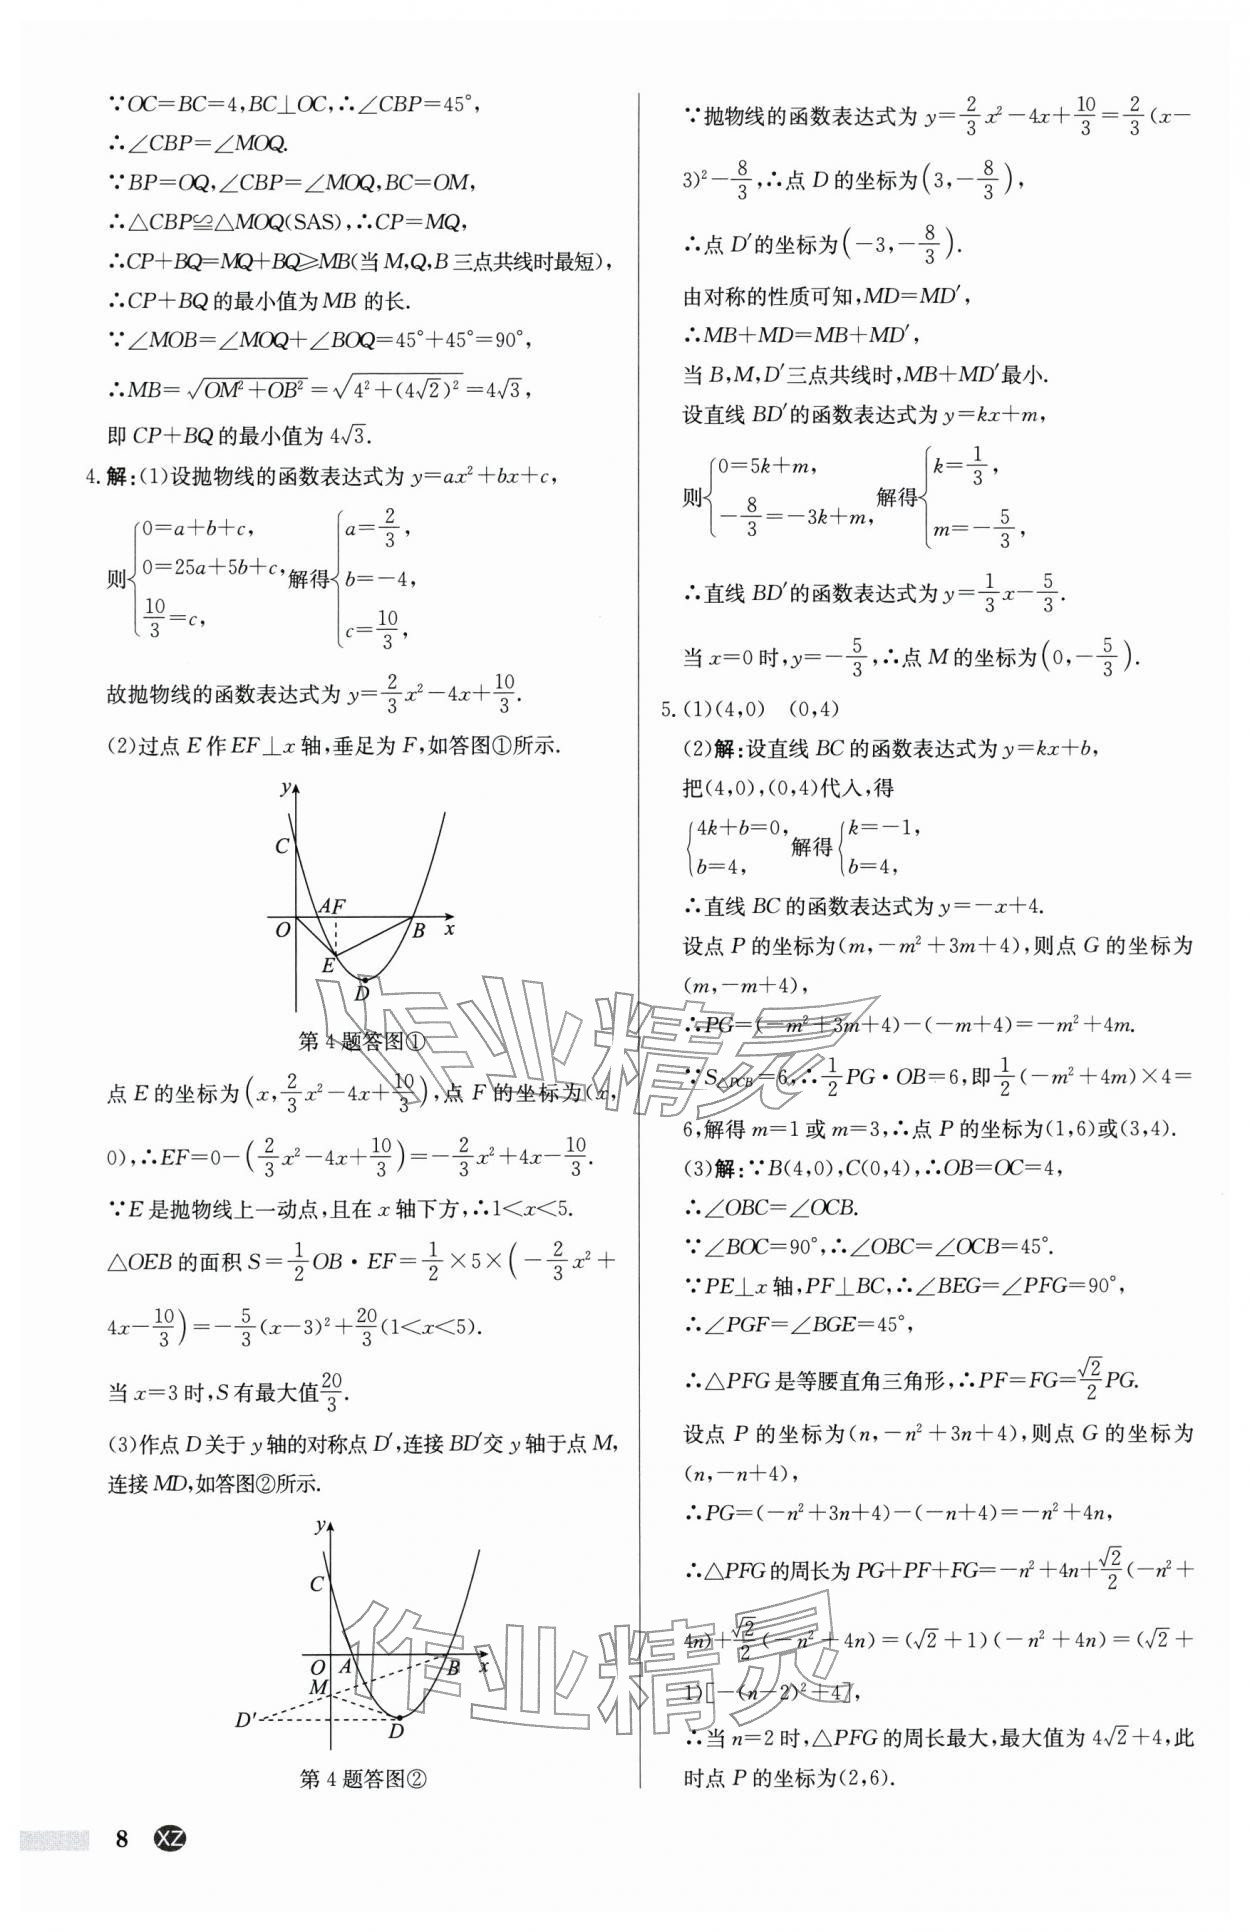 ∵OC=BC=4,BC⊥OC,∴∠CBP=45°,
∴∠CBP=∠MOQ.
∵BP=OQ,∠CBP=∠MOQ,BC=OM,
∴△CBP≌△MOQ(SAS),∴CP=MQ,
∴CP+BQ=MQ+BQ≥MB(当M,Q,B三点共线时最短),
∴CP+BQ的最小值为MB的长.
∵∠MOB=∠MOQ+∠BOQ=45°+45°=90°,
∴MB=√(OM²+OB²)=√(4²+(4√2)²)=4√3,
即CP+BQ的最小值为4√3.
4.解:(1)设抛物线的函数表达式为y=ax²+bx+c,
则{0=a+b+c, 0=25a+5b+c, 10/3=c, 解得{a=2/3, b=-4, c=10/3,
故抛物线的函数表达式为y=2/3x²-4x+10/3.
(2)过点E作EF⊥x轴,垂足为F,如答图①所示.
y
C
A F
O B x
E
D
第4题答图①
点E的坐标为(x,2/3x²-4x+10/3),点F的坐标为(x,
0),∴EF=0-(2/3x²-4x+10/3)=-2/3x²+4x-10/3.
∵E是抛物线上一动点,且在x轴下方,∴1<x<5.
△OEB的面积S=1/2OB·EF=1/2×5×(-2/3x²+
4x-10/3)=-5/3(x-3)²+20/3(1<x<5).
当x=3时,S有最大值20/3.
(3)作点D关于y轴的对称点D′,连接BD′交y轴于点M,
连接MD,如答图②所示.
y
C
O A B x
M
D′ D
第4题答图②
∵抛物线的函数表达式为y=2/3x²-4x+10/3=2/3(x-
3)²-8/3,∴点D的坐标为(3,-8/3),
∴点D′的坐标为(-3,-8/3).
由对称的性质可知,MD=MD′,
∴MB+MD=MB+MD′,
当B,M,D′三点共线时,MB+MD′最小.
设直线BD′的函数表达式为y=kx+m,
则{0=5k+m, -8/3=-3k+m, 解得{k=1/3, m=-5/3,
∴直线BD′的函数表达式为y=1/3x-5/3.
当x=0时,y=-5/3,∴点M的坐标为(0,-5/3).
5.(1)(4,0) (0,4)
(2)解:设直线BC的函数表达式为y=kx+b,
把(4,0),(0,4)代入,得
{4k+b=0, b=4, 解得{k=-1, b=4,
∴直线BC的函数表达式为y=-x+4.
设点P的坐标为(m,-m²+3m+4),则点G的坐标为
(m,-m+4),
∴PG=(-m²+3m+4)-(-m+4)=-m²+4m.
∵S△PCB=6,∴1/2PG·OB=6,即1/2(-m²+4m)×4=
6,解得m=1或m=3,∴点P的坐标为(1,6)或(3,4).
(3)解:∵B(4,0),C(0,4),∴OB=OC=4,
∴∠OBC=∠OCB.
∵∠BOC=90°,∴∠OBC=∠OCB=45°.
∵PE⊥x轴,PF⊥BC,∴∠BEG=∠PFG=90°,
∴∠PGF=∠BGE=45°,
∴△PFG是等腰直角三角形,∴PF=FG=√2/2PG.
设点P的坐标为(n,-n²+3n+4),则点G的坐标为
(n,-n+4),
∴PG=(-n²+3n+4)-(-n+4)=-n²+4n,
∴△PFG的周长为PG+PF+FG=-n²+4n+√2/2(-n²+
4n)+√2/2(-n²+4n)=(√2+1)(-n²+4n)=(√2+
1)[-(n-2)²+4],
∴当n=2时,△PFG的周长最大,最大值为4√2+4,此
时点P的坐标为(2,6).
作业精灵
作业精灵
8 XZ